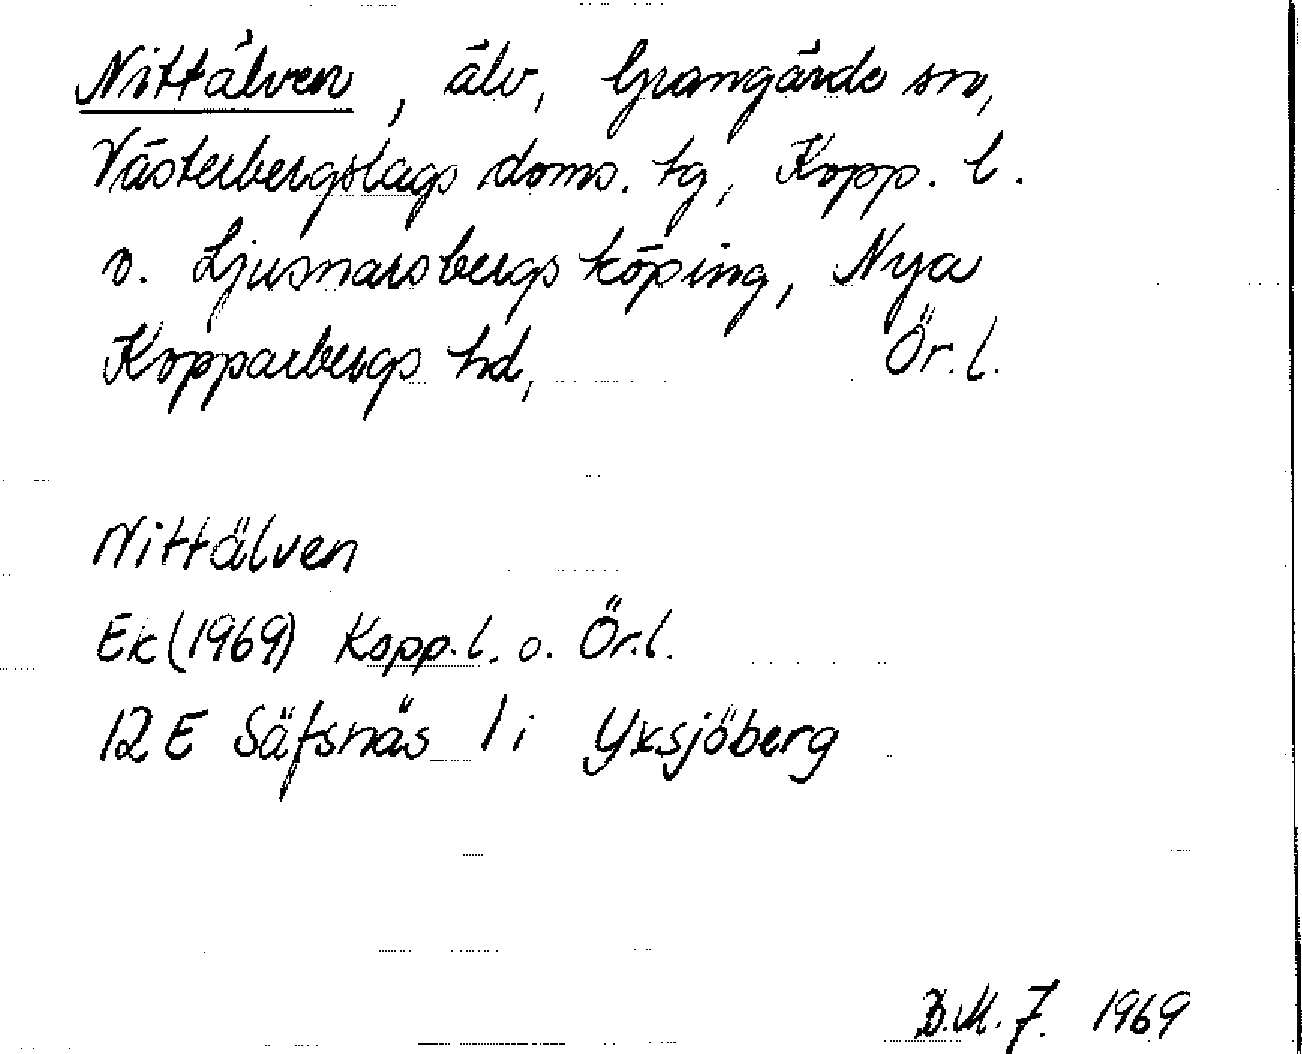 Nittälven, älv, Grangärde sn,
Västerbergslags doms. tg, Kopp. l.
o. Ljusnarsbergs köping, Nya
Kopparbergs hd, Ör. l.
Nittälven
Ek (1969) Kopp. l. o. Ör. l.
12 E Säfsnäs 1 i Yxsjöberg
B.M. 7. 1969